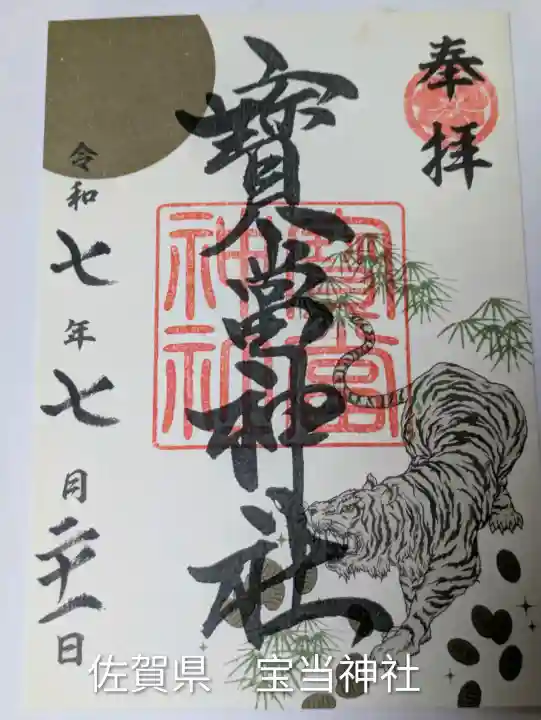 奉拝
寶當神社
寶當
神社
令和七年七月二十一日
佐賀県 宝当神社